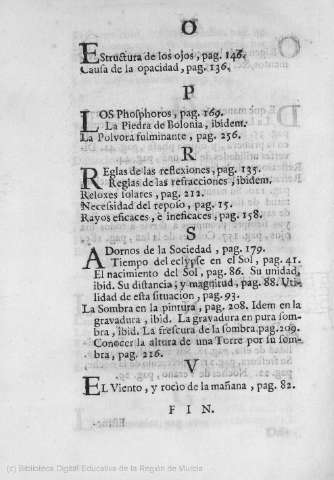 O
EStructura de los ojos, pag. 146.
Causa de la opacidad, pag. 136.
P
LOS Phosphoros, pag. 169.
La Piedra de Bolonia, ibidem.
La Polvora fulminante, pag. 256.
R
REglas de las reflexiones, pag. 135.
Reglas de las refracciones, ibidem.
Reloxes solares, pag. 212.
Necessidad del reposo, pag. 15.
Rayos eficaces, è ineficaces, pag. 158.
S
ADornos de la Sociedad, pag. 179.
Tiempo del eclypse en el Sol, pag. 41.
El nacimiento del Sol, pag. 86. Su unidad,
ibid. Su distancia; y magnitud, pag. 88. Uti-
lidad de esta situacion, pag. 93.
La Sombra en la pintura, pag. 208. Idem en la
gravadura, ibid. La gravadura en pura som-
bra, ibid. La frescura de la sombra, pag. 209.
Conocer la altura de una Torre por su som-
bra, pag. 216.
V
EL Viento, y rocìo de la mañana, pag. 82.
FIN.
(c) Biblioteca Digital Educativa de la Región de Murcia